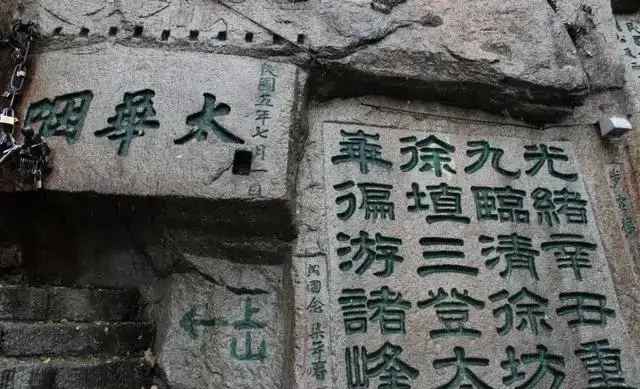 民國五年七月一日
太華咽
光緒辛丑重
九臨清徐坊
徐埴三登太
華徧游諸峰
民國念柒年
←上山